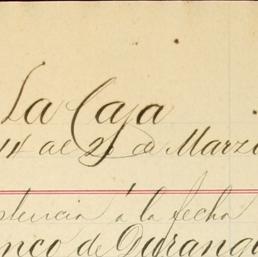 La Caja
14 al 2 de Marz
stencia á la fecha
anco de Durang